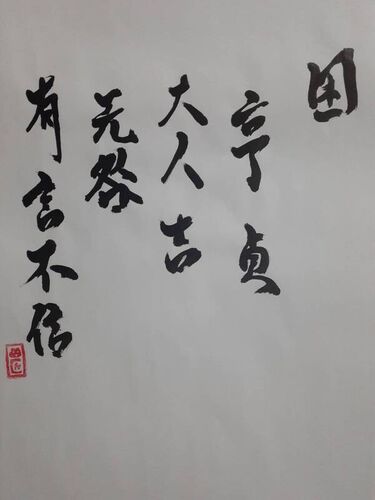 困
亨贞
大人吉
无咎
有言不信